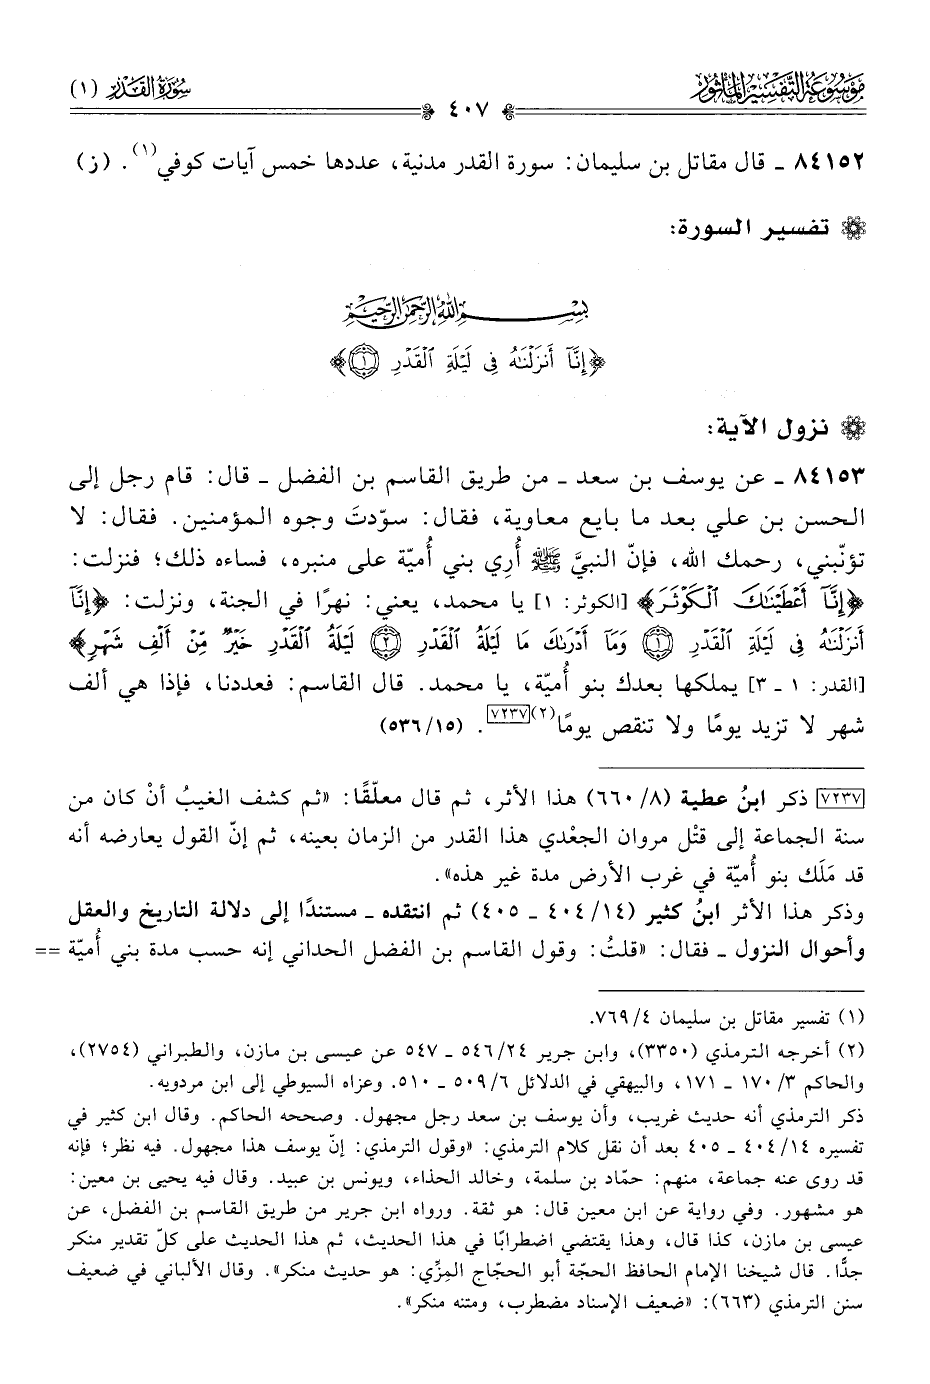 مَوْسُوعَة التَّفْسِير المَأْثُور
سُورَةُ القَدْرِ (١)
٤٠٧
٨٤١٥٢ ـ قال مقاتل بن سليمان: سورة القدر مدنية، عددها خمس آيات كوفي(١). (ز)
تفسير السورة:
بِسْمِ اللَّهِ الرَّحْمَٰنِ الرَّحِيمِ
﴿إِنَّآ أَنزَلْنَٰهُ فِى لَيْلَةِ ٱلْقَدْرِ ١﴾
نزول الآية:
٨٤١٥٣ ـ عن يوسف بن سعد ـ من طريق القاسم بن الفضل ـ قال: قام رجل إلى
الحسن بن علي بعد ما بايع معاوية، فقال: سوّدتَ وجوه المؤمنين. فقال: لا
تؤنّبني، رحمك الله، فإنّ النبيَّ ﷺ أُرِي بني أُميّة على منبره، فساءه ذلك؛ فنزلت:
﴿إِنَّآ أَعْطَيْنَٰكَ ٱلْكَوْثَرَ﴾ [الكوثر: ١] يا محمد، يعني: نهرًا في الجنة، ونزلت: ﴿إِنَّآ
أَنزَلْنَٰهُ فِى لَيْلَةِ ٱلْقَدْرِ ١ وَمَآ أَدْرَىٰكَ مَا لَيْلَةُ ٱلْقَدْرِ ٢ لَيْلَةُ ٱلْقَدْرِ خَيْرٌ مِّنْ أَلْفِ شَهْرٍ﴾
[القدر: ١ ـ ٣] يملكها بعدك بنو أُميّة، يا محمد. قال القاسم: فعددنا، فإذا هي ألف
شهر لا تزيد يومًا ولا تنقص يومًا(٢)[٧٢٣٧]. (٥٣٦/١٥)
[٧٢٣٧] ذكر ابنُ عطية (٨/ ٦٦٠) هذا الأثر، ثم قال معلّقًا: «ثم كشف الغيبُ أنْ كان من
سنة الجماعة إلى قتْل مروان الجعْدي هذا القدر من الزمان بعينه، ثم إنّ القول يعارضه أنه
قد مَلَك بنو أُميّة في غرب الأرض مدة غير هذه».
وذكر هذا الأثر ابنُ كثير (١٤/ ٤٠٤ ـ ٤٠٥) ثم انتقده ـ مستندًا إلى دلالة التاريخ والعقل
وأحوال النزول ـ فقال: «قلتُ: وقول القاسم بن الفضل الحداني إنه حسب مدة بني أُميّة ==
(١) تفسير مقاتل بن سليمان ٤/ ٧٦٩.
(٢) أخرجه الترمذي (٣٣٥٠)، وابن جرير ٢٤/ ٥٤٦ ـ ٥٤٧ عن عيسى بن مازن، والطبراني (٢٧٥٤)،
والحاكم ٣/ ١٧٠ ـ ١٧١، والبيهقي في الدلائل ٦/ ٥٠٩ ـ ٥١٠. وعزاه السيوطي إلى ابن مردويه.
ذكر الترمذي أنه حديث غريب، وأن يوسف بن سعد رجل مجهول. وصححه الحاكم. وقال ابن كثير في
تفسيره ١٤/ ٤٠٤ ـ ٤٠٥ بعد أن نقل كلام الترمذي: «وقول الترمذي: إنّ يوسف هذا مجهول. فيه نظر؛ فإنه
قد روى عنه جماعة، منهم: حمّاد بن سلمة، وخالد الحذاء، ويونس بن عبيد. وقال فيه يحيى بن معين:
هو مشهور. وفي رواية عن ابن معين قال: هو ثقة. ورواه ابن جرير من طريق القاسم بن الفضل، عن
عيسى بن مازن، كذا قال، وهذا يقتضي اضطرابًا في هذا الحديث، ثم هذا الحديث على كلّ تقدير منكر
جدًّا. قال شيخنا الإمام الحافظ الحجّة أبو الحجّاج المِزِّي: هو حديث منكر». وقال الألباني في ضعيف
سنن الترمذي (٦٦٣): «ضعيف الإسناد مضطرب، ومتنه منكر».